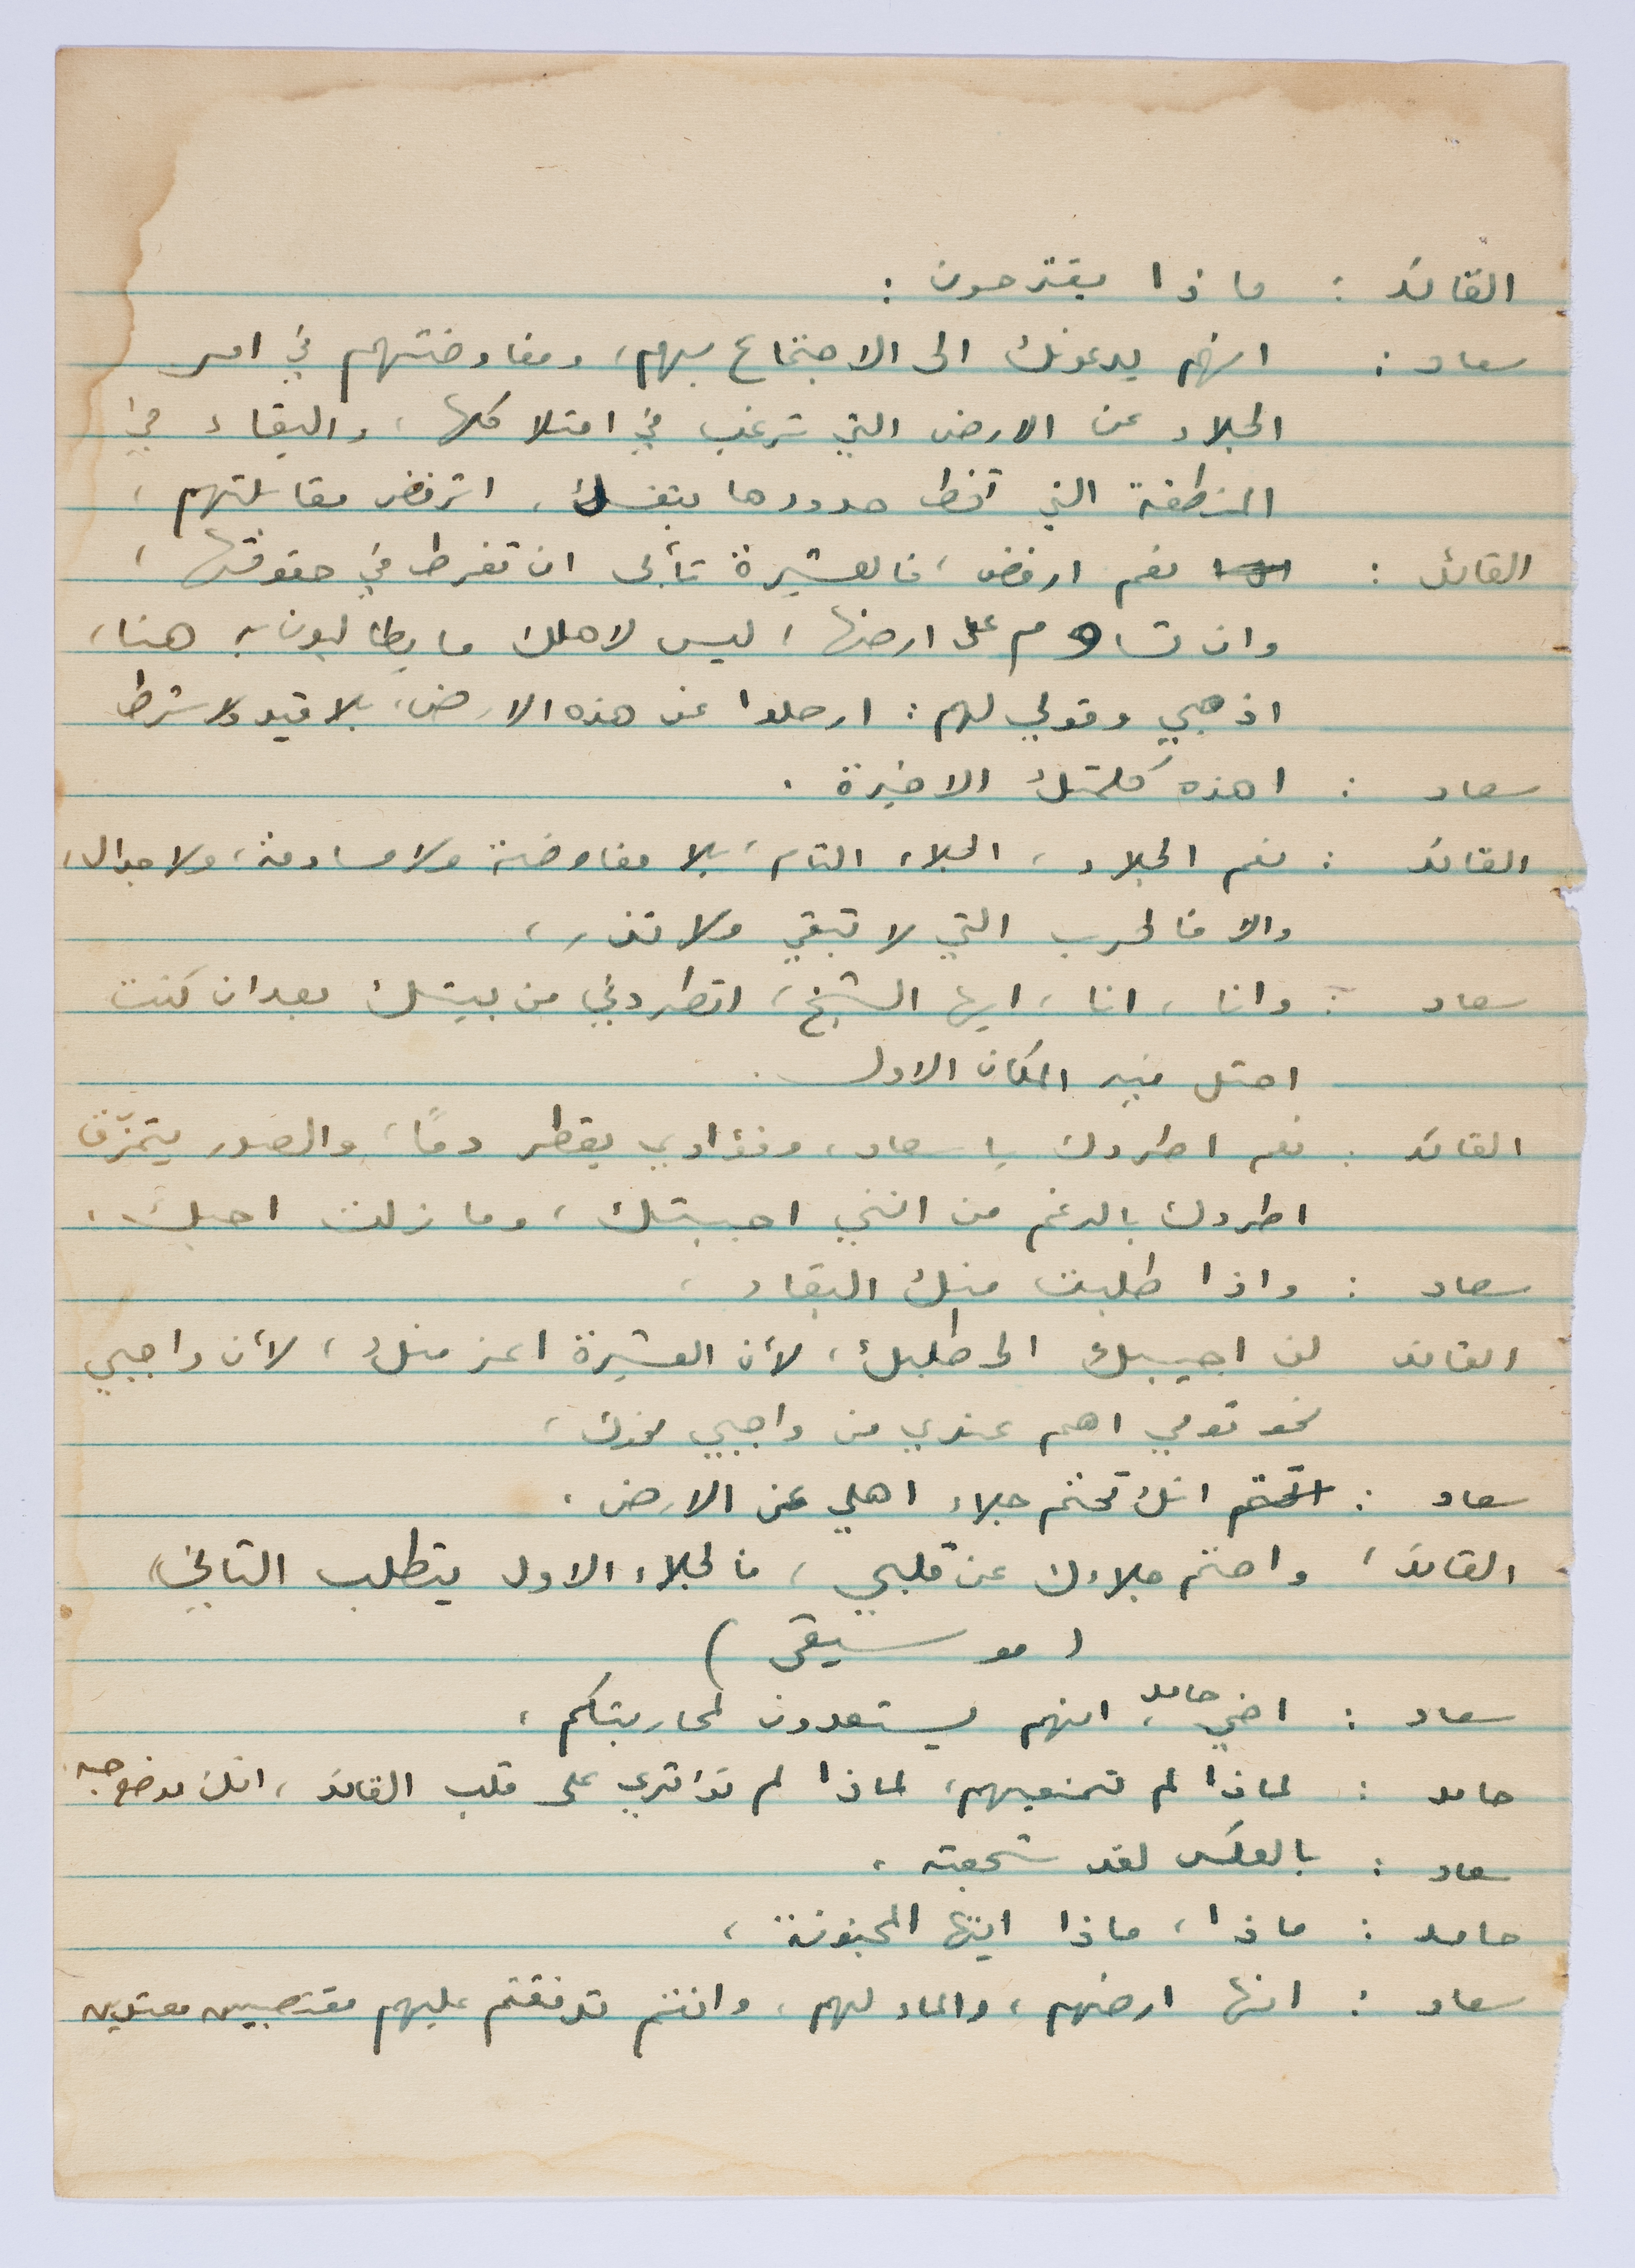 القائد : ماذا يقترحون :
سعاد : انهم يدعونك الى الاجتماع بهم، ومفاوضتهم في امر
الجلاء عن الارض التي ترغب في امتلاكها، والبقاء في
المنطقة التي تخط حدودها بنفسك، اترفض مقابلتهم،
القائد : نعم ارفض، فالعشيرة تأبى ان تفرط في حقوقها،
وان تساوم على ارضها، ليس لاهلك ما يطالبون به هنا،
اذهبي وقولي لهم : ارحلوا عن هذه الارض، بلا قيد ولا شرط
سعاد : اهذه كلمتك الاخيرة .
القائد : نعم الجلاء، الجلاء التام، بلا مفاوضة ولا مساومة، ولا جدال،
والا فالحرب التي لا تبقي ولا تذر،
سعاد : وانا، انا، ايها الشيخ، اتطردني من بيتك بعد ان كنت
احتل فيه المكان الاول .
القائد : نعم اطردك يا سعاد، وفؤادي يقطر دمًا، والصدر يتمزّق
اطردك بالرغم من انني احببتك، وما زلت احبك،
سعاد : واذا طلبت منك البقاء،
القائد لن اجيبك الى طلبك، لأن العشيرة اعز منك، لأن واجبي
نحو قومي اهم عندي من واجبي نحوك،
سعاد : اتحتم انك تحتم جلاء اهلي عن الارض،
القائد، واحتم جلاءك عن قلبي، فالجلاء الاول يتطلب الثاني،
(موسيقى)
سعاد : اخي حامد، انهم يستعدون لمحاربتكم،
حامد : لماذا لم تمنعيهم، لماذا لم تؤثري على قلب القائد، انك موضع حبه.
سعاد : بالعكس لقد شجعته،
حامد : ماذا، ماذا ايتها المجنونة،
سعاد : انها ارضهم، والماء لهم، وانتم تدفقتم عليهم مغتصبين معتدين